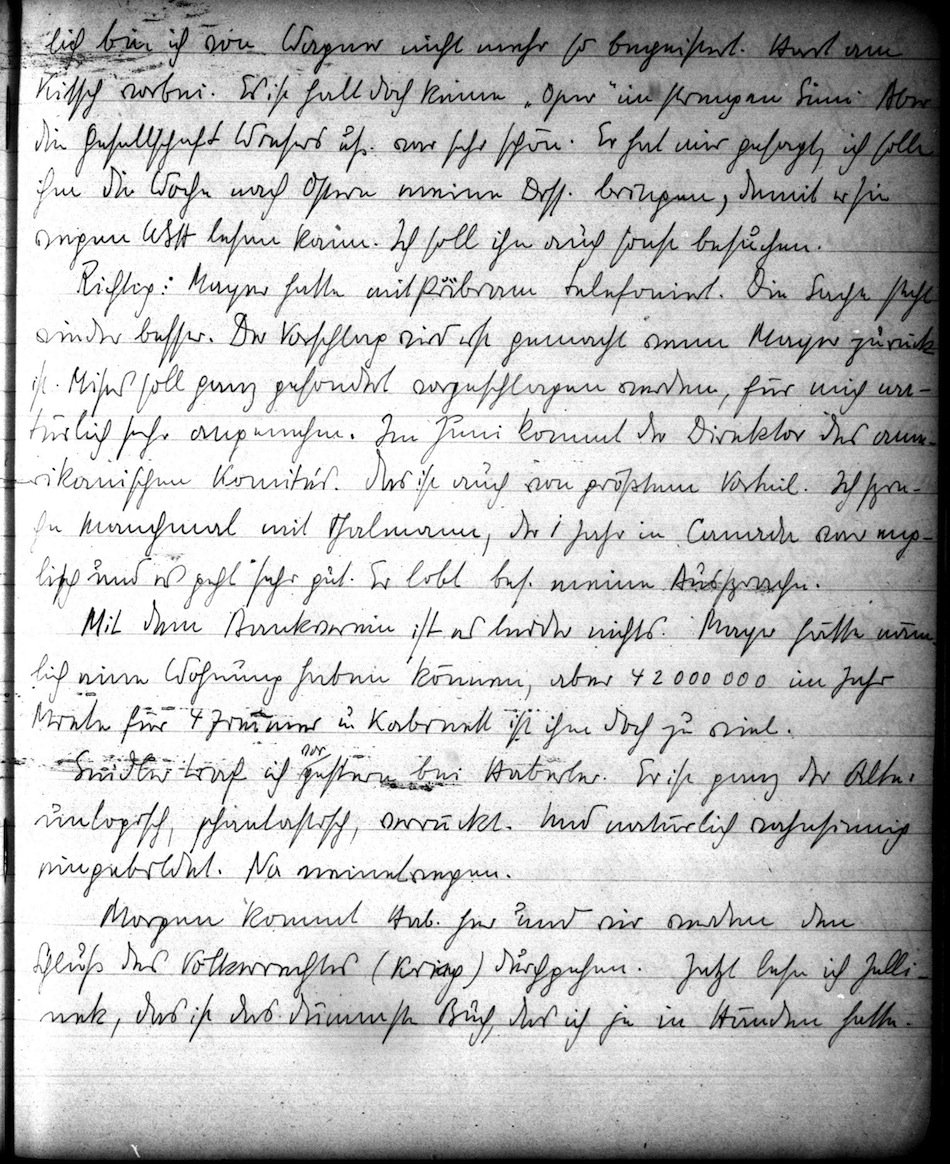 lich bin ich von Wagner nicht mehr so begeistert. Hart am
Kitsch vorbei. Es ist halt doch keine „Oper“ im strengen Sinn. Aber
die Gesellschaft Wiesers usf. war sehr schön. Er hat mir gesagt, ich solle
ihm die Woche nach Ostern meine Diss. bringen, damit er sie
wegen lesen kann. Ich soll ihn auch sonst besuchen.
Richtig: Mayer hatte mit Přibram telefoniert. Die Sache steht
wieder besser. Der Vorschlag wird erst gemacht wenn Mayer zurück
ist. Mises soll ganz gesondert vorgeschlagen werden, für mich na-
türlich sehr angenehm. Im Juni kommt der Direktor des ame-
rikanischen Komités. Das ist auch von größtem Vorteil. Ich spre-
che manchmal mit Thalmann, der 1 Jahr in Canada war eng-
lisch und es geht sehr gut. Er lobt bes. meine Aussprache.
Mit dem Bankverein ist es leider nichts. Mayer hätte näm-
lich eine Wohnung haben können, aber 42000000 im Jahr
Miete für 4 Zimmer u Kabinett ist ihm doch zu viel.
Seidler traf ich vorgestern bei Haberler. Er ist ganz der Alte:
unlogisch, phantastisch, verrückt. Und natürlich wahnsinnig
eingebildet. Na meinetwegen.
Morgen kommt Hab. her und wir werden den
Schluß des Völkerrechtes (Krieg) durchgehen. Jetzt lese ich Jelli-
nek, das ist das dümmste Buch, das ich je in Händen hatte.